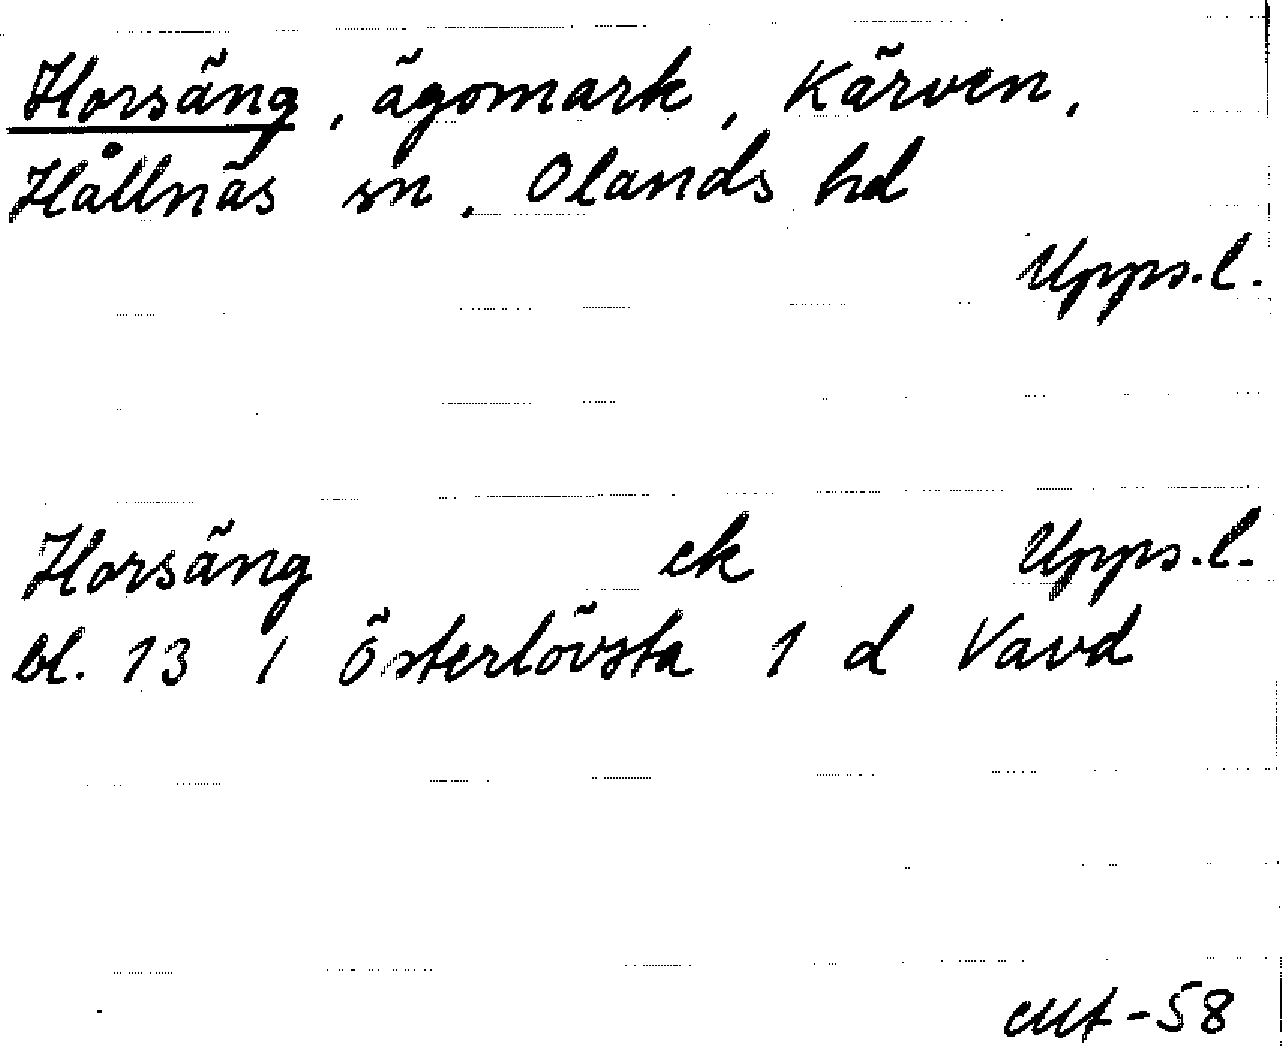 Horsäng, ägomark, Kärven,
Hållnäs sn, Olands hd
Upps.l.
Horsäng ek Upps.l.
bl. 13 / Österlövsta 1 d Vavd
-58